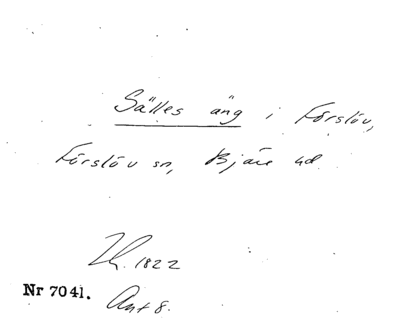 Sälles äng i Förslöv,
Förslöv sn, Bjäre hd
1822
Nr 7041.
Ant 8.